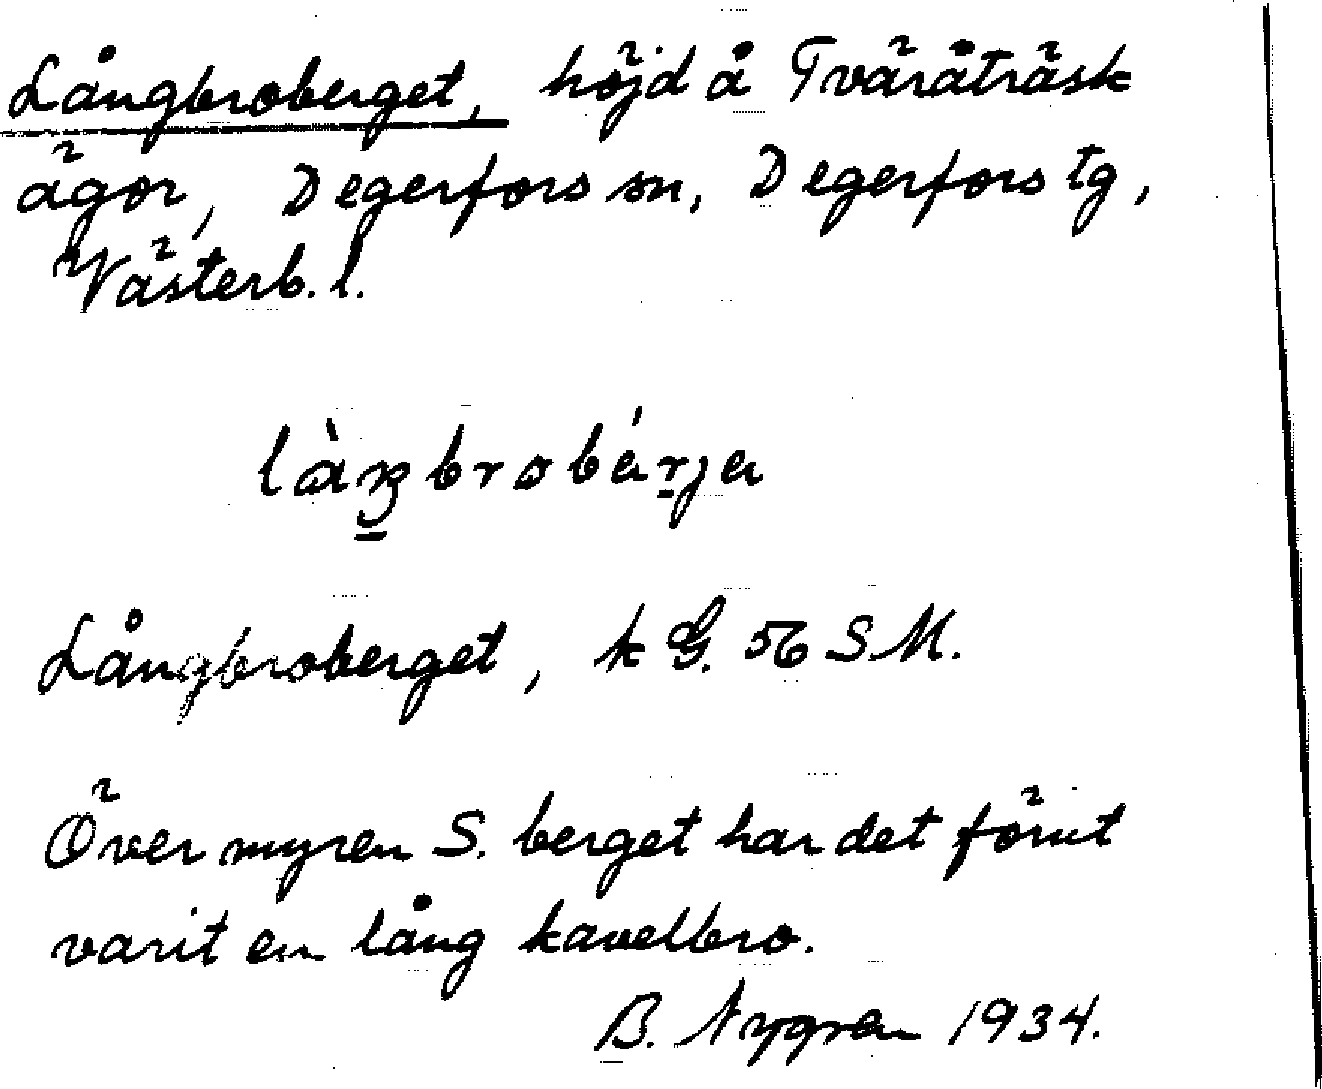 Långbroberget, höjd å Tväråträsk
ägor, Degerfors sn, Degerfors tg,
Västerb. l.
làŋbrobárja
Långbroberget, k G. 56 SM.
Över myren S. berget har det förut
varit en lång kavelbro.
B. Nygren 1934.